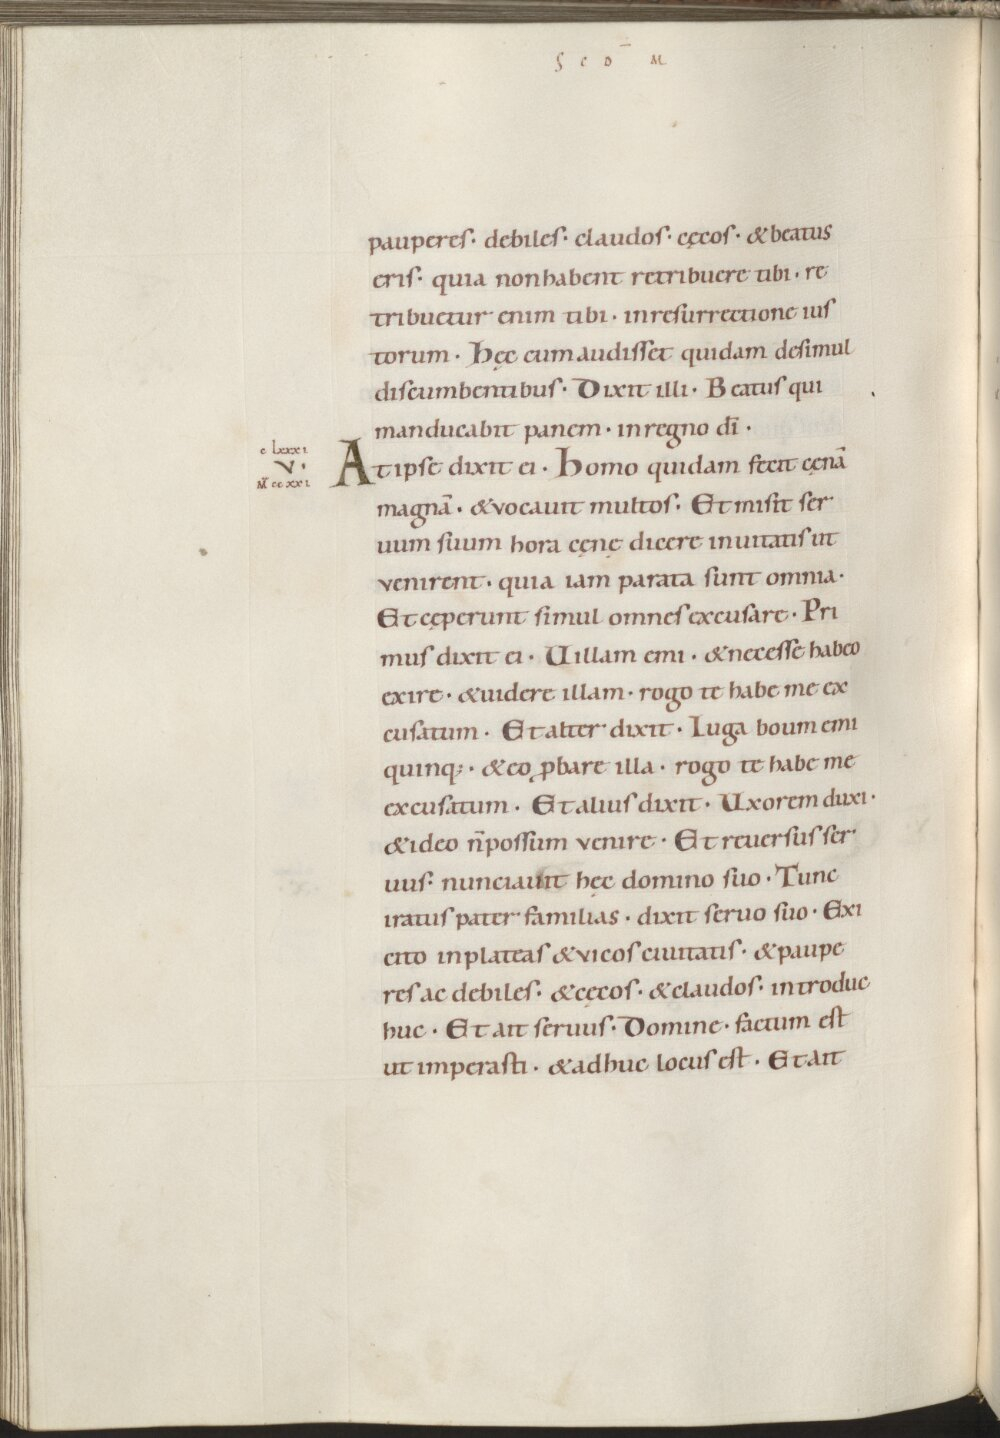 SCD̄ M
pauperes· debiles· claudos· cęcos· & beatus
eris· quia non habent retribuere tibi· re
tribuetur enim tibi· in resurrectione ius
torum· Hęc cum audisset quidam de simul
discumbentibus· Dixit illi· Beatus qui
manducabit panem· in regno dī·
c lxxxi
V·
M̄ ccxxi
At ipse dixit ei· Homo quidam fecit cęnā
magnā· & vocavit multos· Et misit ser
uum suum hora cęnę dicere inuitatis ut
venirent· quia iam parata sunt omnia·
Et cęperunt simul omnes excusare· Pri
mus dixit ei· Uillam emi· & necesse habeo
exire· & uidere illam· rogo te habe me ex
cusatum· Et alter dixit· Iuga boum emi
quinq;· & eo ꝓbare illa· rogo te habe me
excusatum· Et alius dixit· Uxorem duxi·
& ideo n̄ possum venire· Et reuersus ser
uus· nunciauit hęc domino suo· Tunc
iratus pater familias· dixit seruo suo· Exi
cito in plateas & vicos ciuitatis· & paupe
res ac debiles· & cęcos· & claudos· introduc
huc· Et ait seruus· Domine· factum est
ut imperasti· & adhuc locus est· Et ait